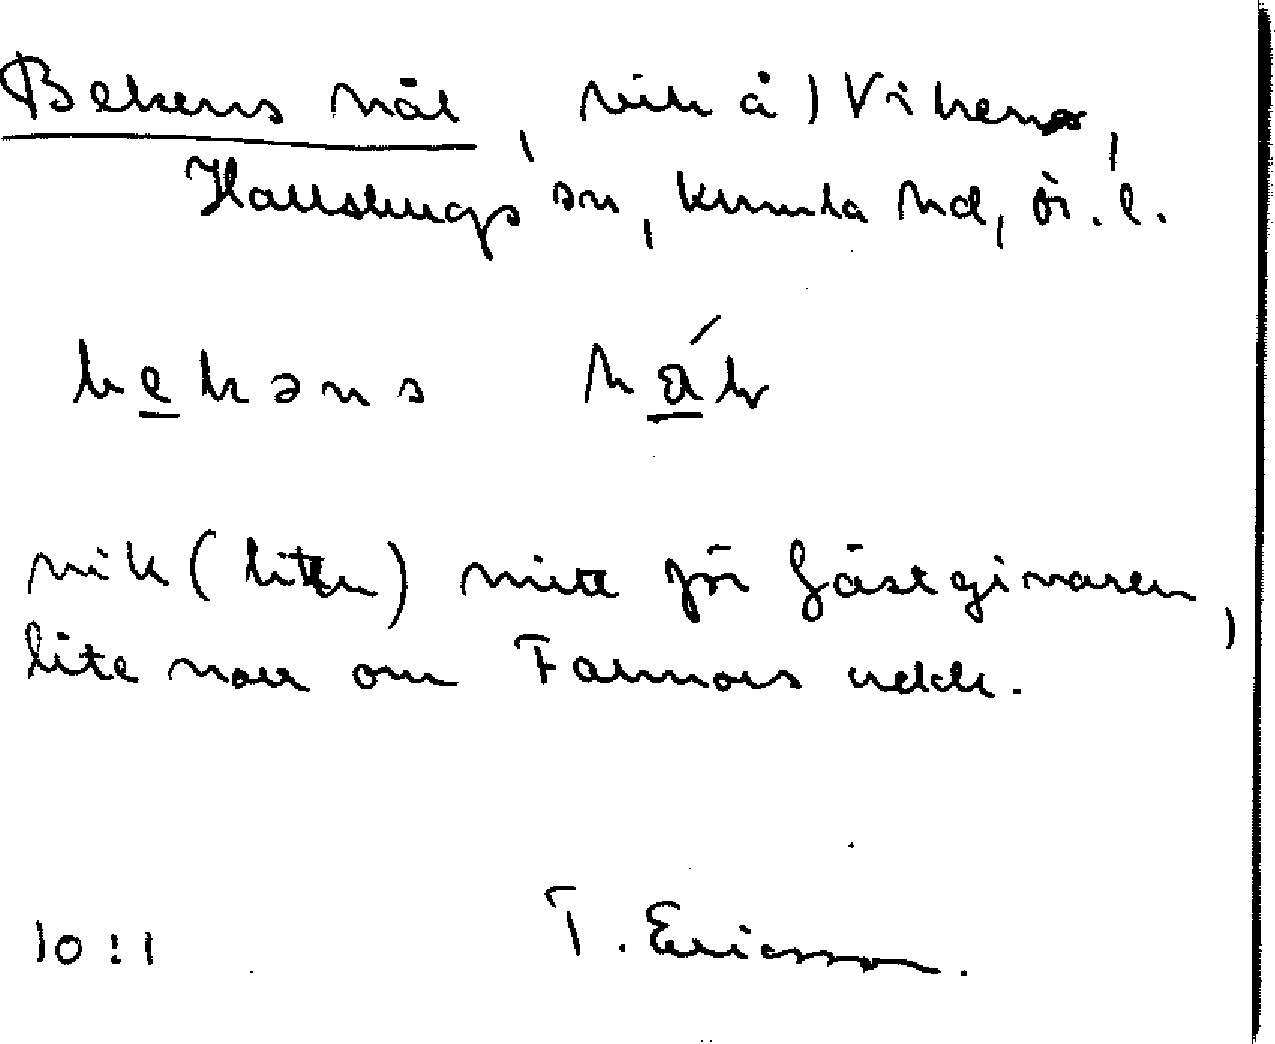 Bekens hål, vik å) Viken,
Hallsbergs sn, Kumla hd, Ör. l.
bekəns hǻl
vik (liten) mitt för Gästgivaren,
lite norr om Falmors udde.
10:1 T. Ericsson.